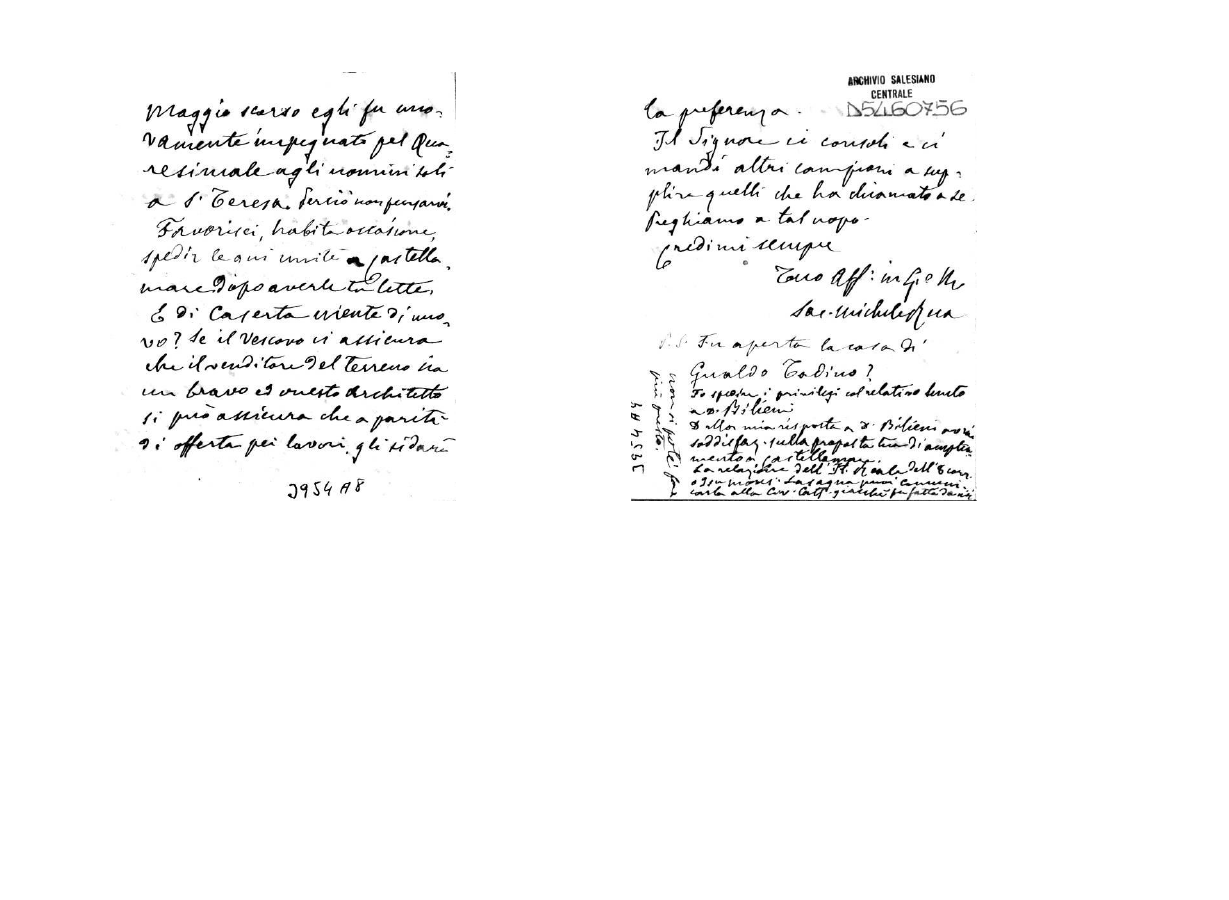 Maggio scorso egli fu nuo-
vamente impegnato pel Qua-
resimale agli uomini soli
a S. Teresa. Perciò non pensarvi.
Favorisci, habita occasione,
spedir le qui unite a Castella-
mare dopo averle tu lette.
E di Caserta niente di nuo-
vo? Se il Vescovo vi assicura
che il venditore del terreno sia
un bravo ed onesto architetto
si può assicura che a parità
di offerta pei lavori, gli si darà
3954 A8
ARCHIVIO SALESIANO
CENTRALE
D5460756
la preferenza.
Il Signore ci consoli e ci
mandi altri campioni a sup-
plire quelli che ha chiamato a se.
Preghiamo a tal uopo.
Credimi sempre
Tuo Aff: in G. e M.
Sac. Michele Rua
P.S. Fu aperta la casa di
Gualdo Tadino?
Fo spedire i privilegi col relativo
a D. Bilieni
Dalla mia risposta a D. Bilieni avrai
soddisfaz. sulla proposta tua di amplia-
mento a Castellamare.
La relazione dell'
di Mons. Lasagna puoi comuni-
carla alla giacché fu fatta da
non si poté far
più presto.